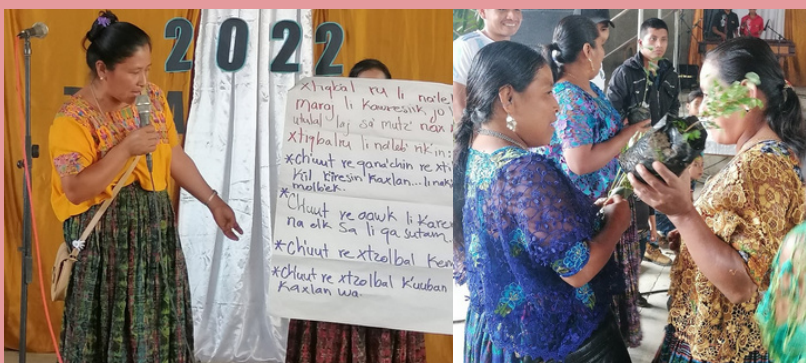 2022
xtiqbal ru li na'leb
maraj li kawresink, jo'
utulal laj sa' mutz' nan
xtiqbalru li na'leb' rik'in:
*ch'uut re qana'chin re xti
kil k'iresin kaxlan... li nak
molb'ek.
*Ch'uut re aawk li Kare
na elk sa li qa sutam.
*Ch'uut re xtzolbal Kem
*Ch'uut re xtzolbal k'uuban
Kaxlan wa.